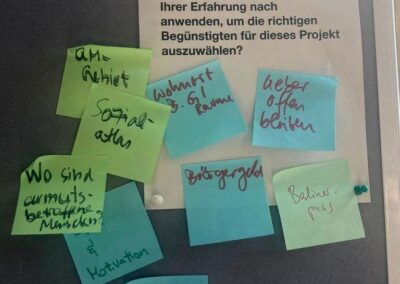 Ihrer Erfahrung nach
anwenden, um die richtigen
Begünstigten für dieses Projekt
auszuwählen?
QM-
Gebiet
Sozial-
atlas
Wohnort
z.B. G!
Räume
Lieber
offen
bleiben
Wo sind
armuts-
betroffene
Menschen?
Bürgergeld
Berliner-
pass
&
Motivation